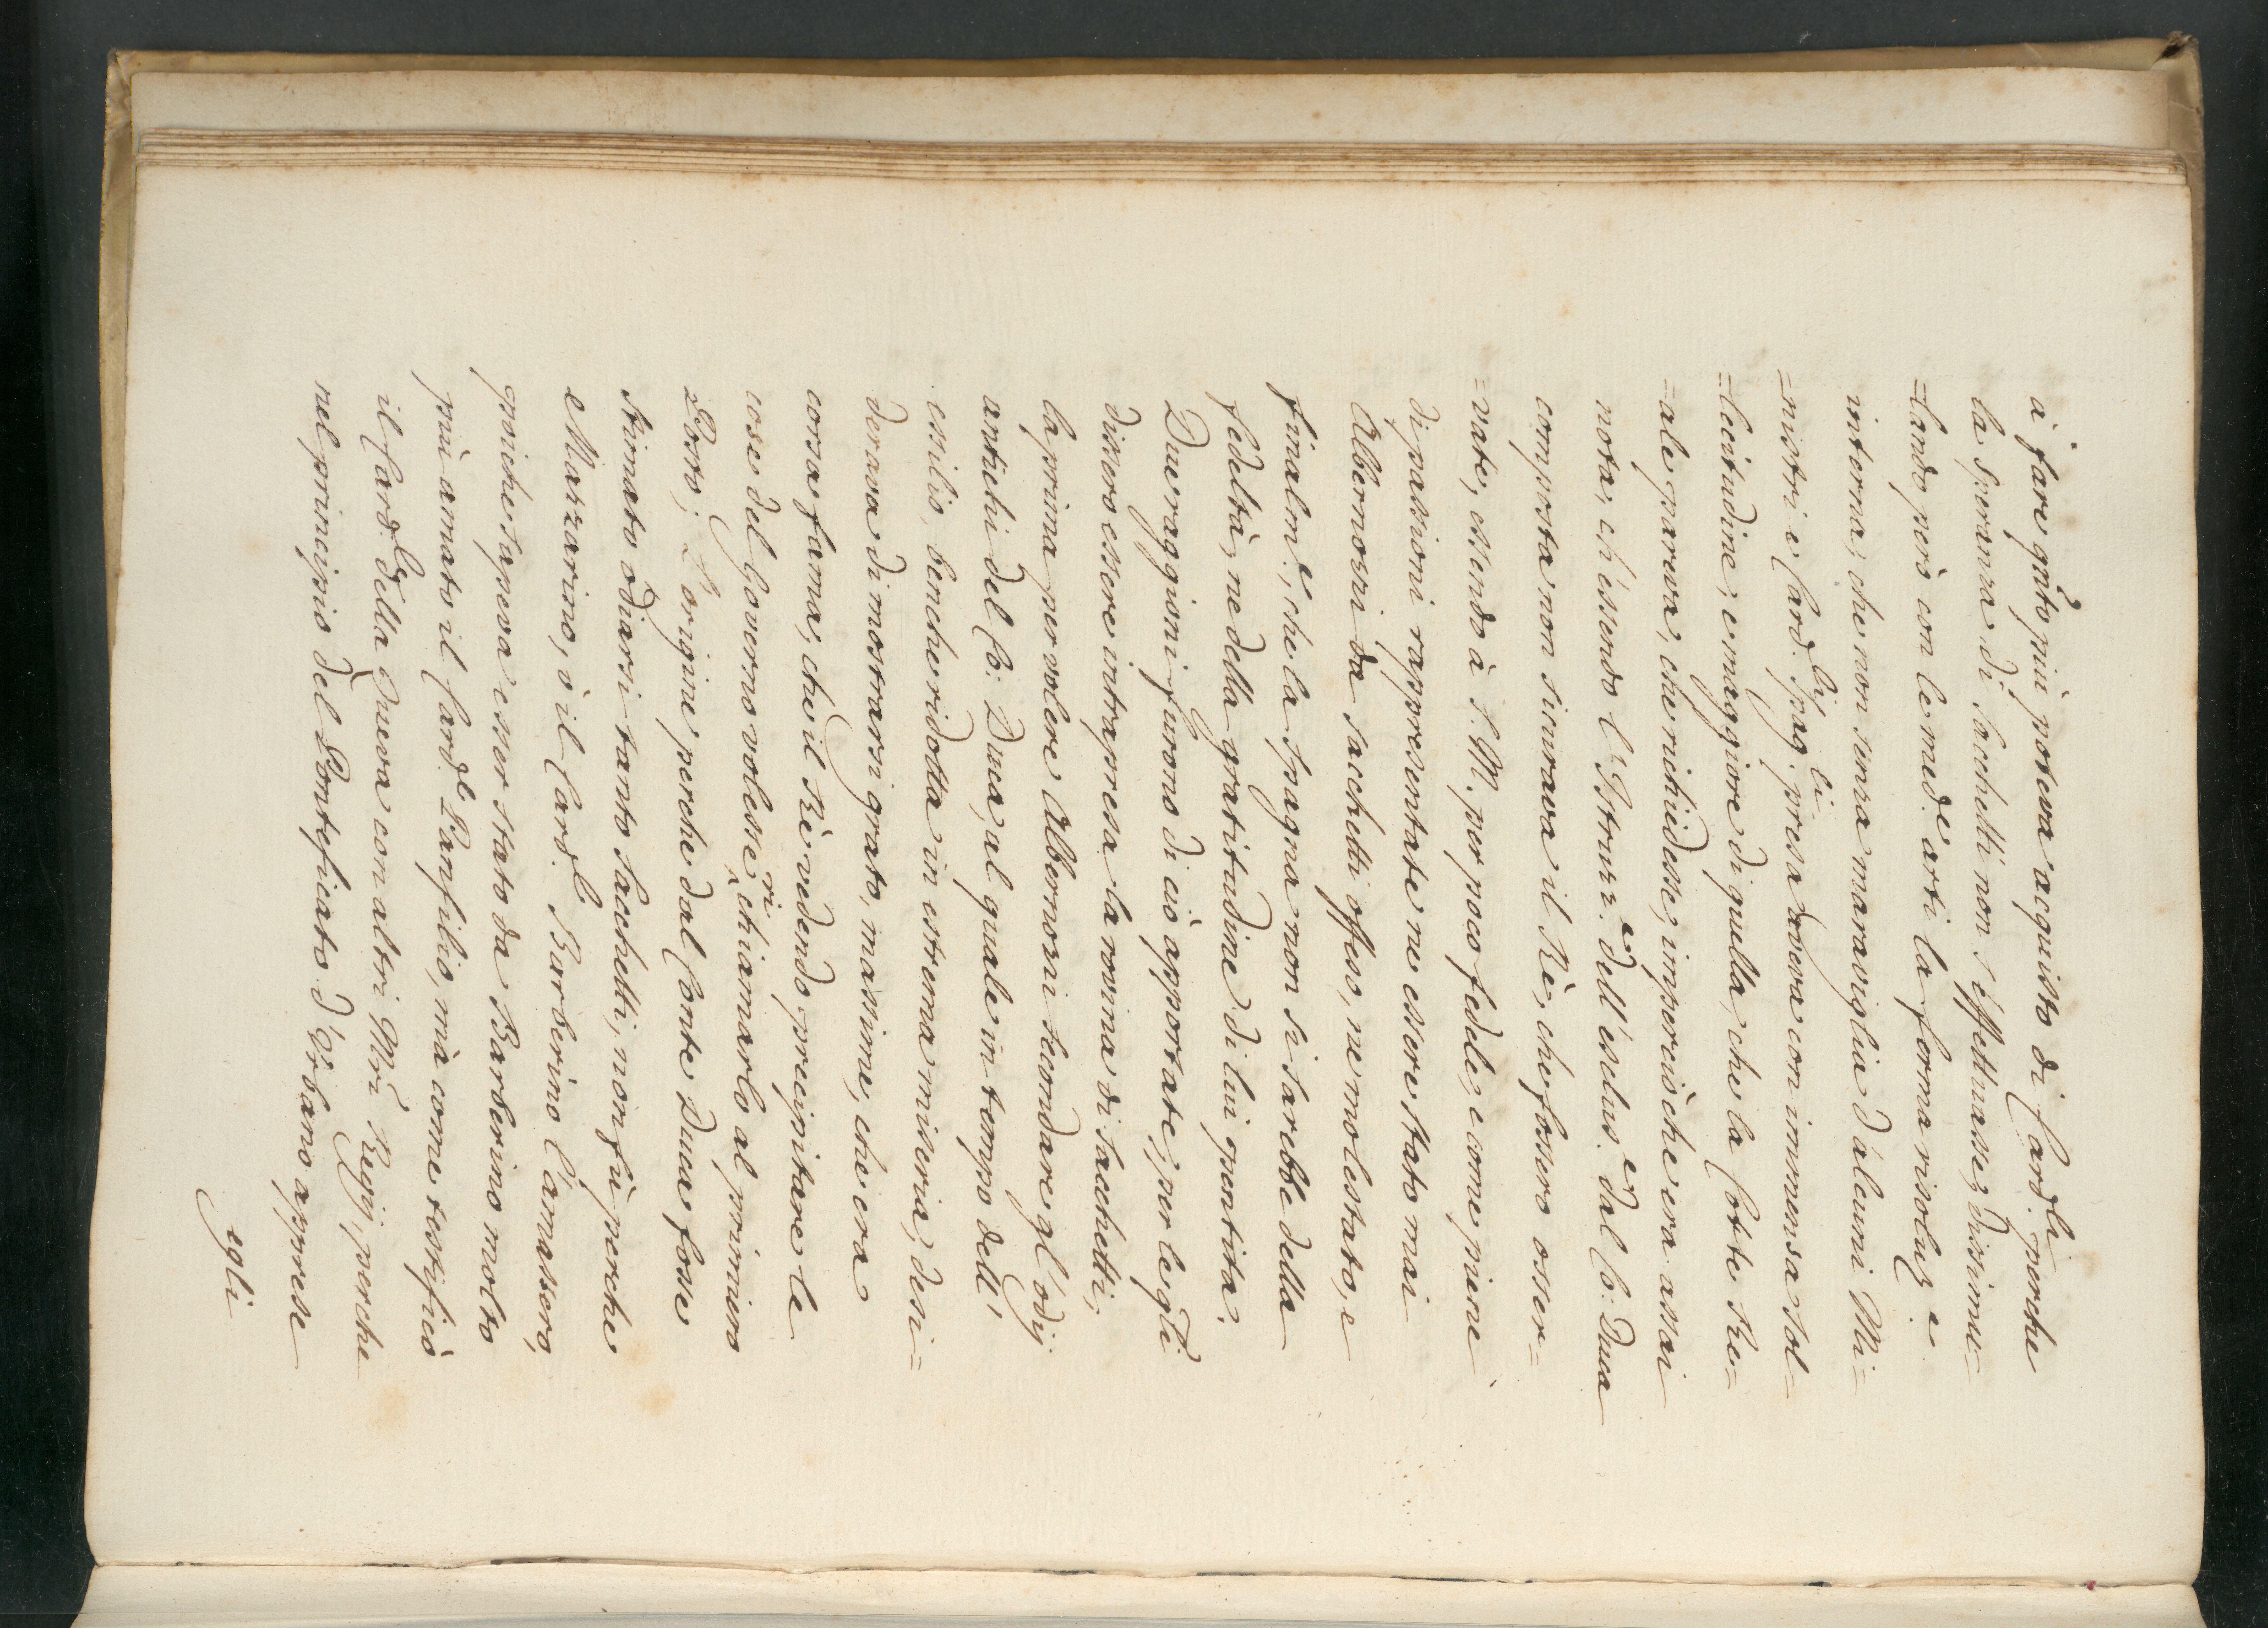 à fare qnto più poteva acquisto di Card.li perche
la speranza di Sacchetti non s'effettuasse, dissimu=
=lando però con le med.e arti la forma risoluz.e
interna, che non senza maraviglia d'alcuni Mi=
=nistri e Card.li Spag.li presa aveva con immensa sol=
=lecitudine, e maggiore di quella, che la Corte Re=
=ale pareva, che richiedesse, imperciòche era assai
nota, ch'essendo l'Istruz.e dell'esclus.e dal Co: Duca
composta non sicurava il Rè, che fossero osser=
=vate, essendo à S. M. per poco fedele, e come piene
di passioni rappresentate ne essere stato mai
Albernozzi da Sacchetti offeso, ne molestato, e
finalm.e, che la Spagna non si sarebbe della
fedeltà, ne della gratitudine di lui pentita.
Due raggioni furono di ciò apportate, per le qli
dissero essere intrapresa la rovina di Sacchetti,
la prima per volere Albernozzi secondare gl'odij
antichi del Co: Duca, al quale in tempo dell'
essilio, benche ridotta in estrema miseria, desi=
derava di mostrarsi grato, massime, che era
corsa fama, che il Rè vedendo precipitare le
cose del Governo volesse richiamarlo al primiero
Posto; L'origine perche dal Conte Duca fosse
stimato odiarsi tanto Sacchetti, non fù perche
e Mazzarino, ò il Card.l Barberino l'amassero,
poiche sapeva esser stato da Barberino molto
più amato il Card.l Panfilio, mà come testificò
il Card.l della Queva con altri Mri Regij, perche
nel principio del Pontefiato d'Urbano apprese
egli